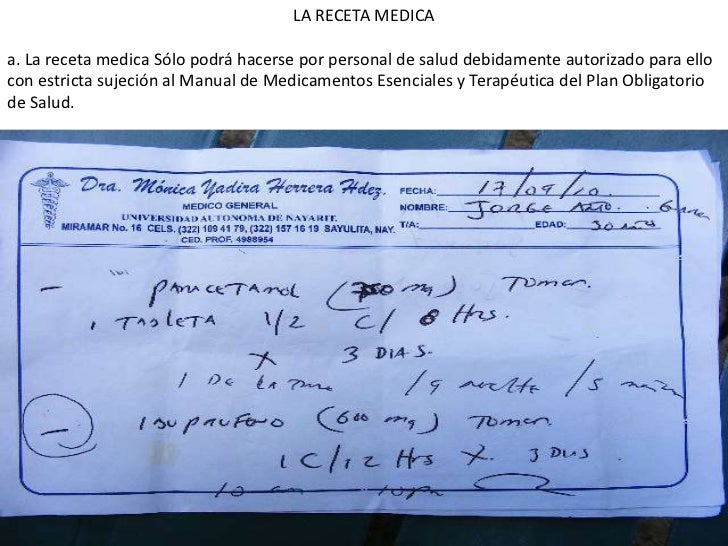 LA RECETA MEDICA
a. La receta medica Sólo podrá hacerse por personal de salud debidamente autorizado para ello
con estricta sujeción al Manual de Medicamentos Esenciales y Terapéutica del Plan Obligatorio
de Salud.
Dra. Mónica Yadira Herrera Hdez.
MEDICO GENERAL
UNIVERSIDAD AUTONOMA DE NAYARIT.
MIRAMAR No. 16 CELS. (322) 109 41 79, (322) 157 16 19 SAYULITA, NAY.
CED. PROF. 4988954
FECHA: 17/09/10
NOMBRE: JORGE
T/A: EDAD: 30 años
- PARACETAMOL ( mg) Tomar
1 TABLETA 1/2 C/ 8 Hrs.
x 3 DIAS.
1 DE LA TARDE / 9 noche / 5
- IBUPROFENO (600 mg) Tomar
1 C/12 Hrs x 3 DIAS
10 am 10 pm